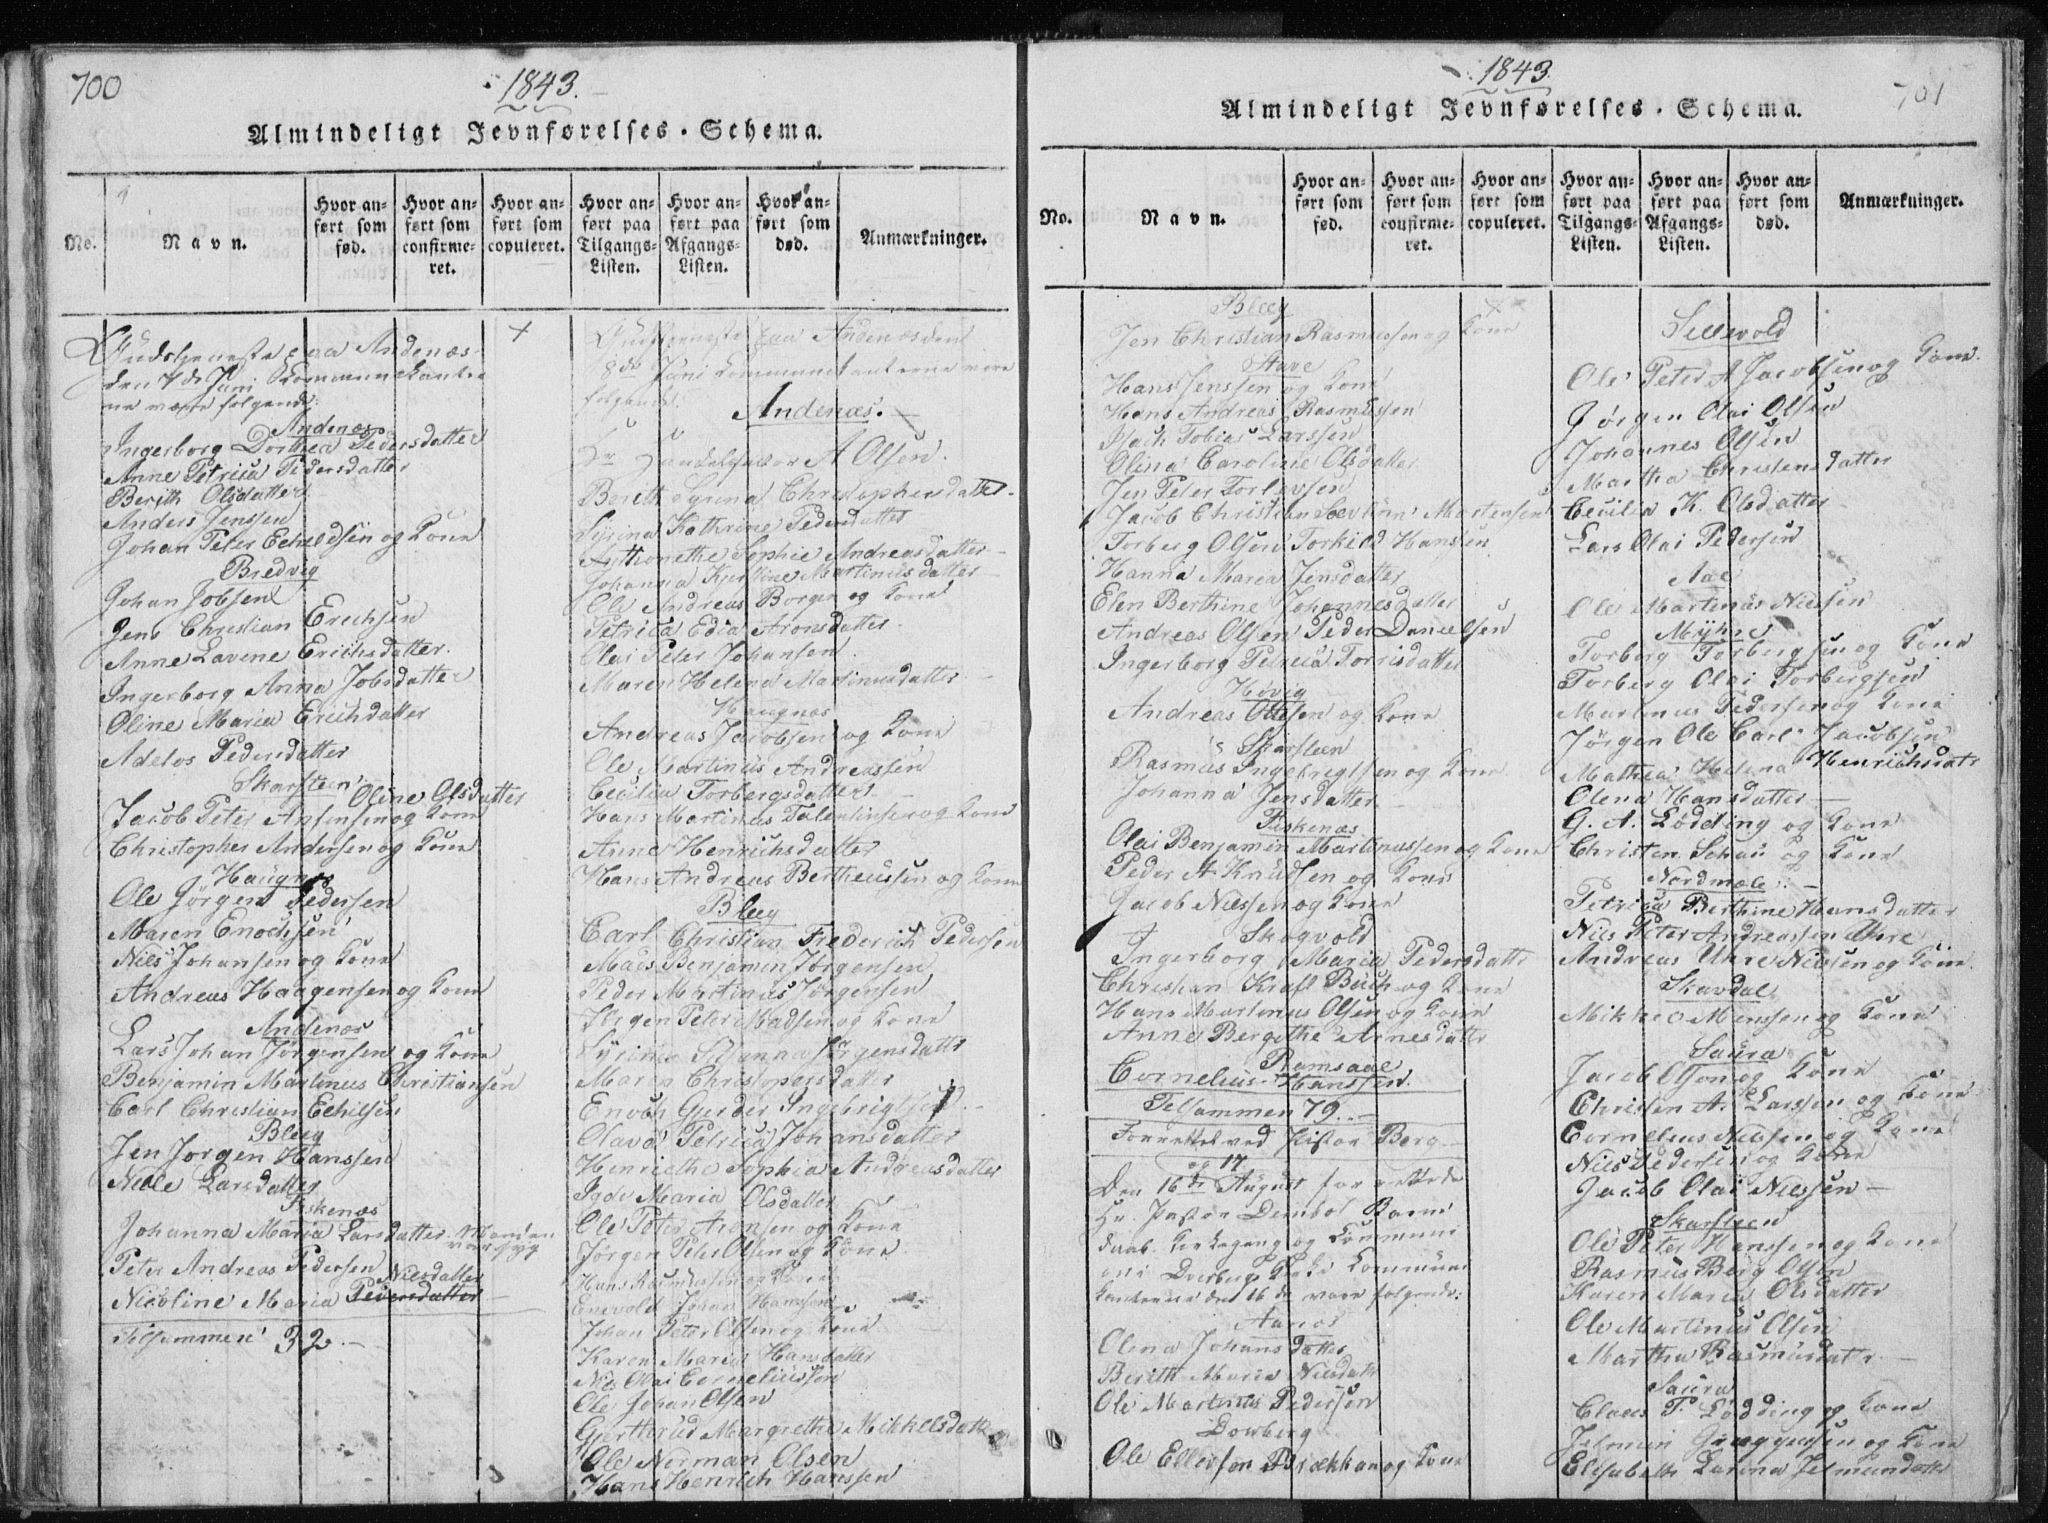 700
1843.
Almindeligt Jevnførelses-Schema.
No.
Navn.
Hvor an-ført som fød.
Hvor an-ført som confirme-ret.
Hvor an-ført som copuleret.
Hvor an-ført paa Tilgangs-Listen.
Hvor an-ført paa Afgangs-Listen.
Hvor an-ført som død.
Anmærkninger.
Gudstjeneste paa Andenæs
den 7de Juni Kommunikanter
ne være følgende:
Andenæs
Ingerborg Dorthea Pedersdatter
Anne Petrica Pedersdatter
Berith Olsdatter
Anders Jenssen
Johan Peter Echeldsen og Kone
Bredvig
Johan Jobsen
Jens Christian Erichsen
Anne Lavene Erichsdatter.
Ingerborg Anna Jobsdatter
Oline Maria Erichdatter
Adelos Pedersdatter
Skarsteen
Oline Olsdatter
Jacob Peter Anfensen og Kone
Christopher Andersen og Kone
Haugnæs
Ole Jørgen Pedersen
Maren Enochsen
Niels Johansen og Kone
Andreas Haagensen og Kone
Andenæs
Lars Johan Jørgensen og Kone
Benjamin Martinus Christiansen
Carl Christian Echilsen
Bleeg
Jen Jørgen Hanssen
Nelle Larsdatter
Fiskenæs
Johanna Maria Larsdatter Manden
var syg
Peter Andreas Pedersen
Nielsdatter
Nicoline Maria Pedersdatter
Tilsammen 32.
Gudstjeneste paa Andenæs den
8de Juni Kommunikanterne vare
følgende.
Andenæs.
Hr Handelsfactor A Olsen.
Berith Syrina Christophersdatter.
Syrina Kathrine Pedersdatter
Anthonethe Sophie Andreasdatter
Johanna Kjerstine Martinusdatter
Ole Andreas Borgen og Kone
Petrica Edia Aronsdatter
Olai Peter Johansen.
Maren Helena Martinusdatter
Haugnæs
Andreas Jacobsen og Kone
Ole Martinus Andreassen
Cecilia Torbergsdatter
Hans Martinus Talentinsen og Kone
Anne Henrichsdatter
Hans Andreas Bertheussen og Kone
Bleeg
Carl Christian Frederich Pedersen
Mads Benjamin Jørgensen
Peder Martinus Jørgensen
Jørgen Peter Madsen og Kone
Syrina Susanna Jørgensdatter
Maren Christophersdatter
Enoch Gjerder Ingebrigtsen
Olava Petrica Johansdatter
Henriethe Sophia Andreasdatter
Maria Olsdatter
Ole Peter Aronsen og Kone
Jørgen Peter Olsen og Kone
Hans Rasmussen og Kone
Enevold Johan Hanssen
Johan Peter Olsen og Kone
Karen Maria Hansdatter
Nils Olai Corneliussen
Ole Johan Olsen
Gjertrud Margrethe Mikkelsdatter
Ole Norman Olsen
Hans Henrich Hanssen
1843.
701
Almindeligt Jevnførelses-Schema.
No.
Navn.
Hvor an-ført som fød.
Hvor an-ført som confirme-ret.
Hvor an-ført som copuleret.
Hvor an-ført paa Tilgangs-Listen.
Hvor an-ført paa Afgangs-Listen.
Hvor an-ført som død.
Anmærkninger.
Bleeg
Jen Christian Rasmussen og Kone
Stave
Hans Jenssen og Kone
Hans Andreas Rasmussen
Isach Tobias Larssen
Olina Caroline Olsdatter
Jen Peter Torlevsen
Jacob Christian Martensen
Torberg Olsen Torkild Hansen
Hanna Maria Jensdatter
Elen Berthine Johannesdatter
Andreas Olsen Peder Danielsen
Ingerborg Petrica Torrisdatter
Høvig
Andreas Olsen og Kone
Skarsteen
Rasmus Ingebrigtsen og Kone
Johanna Jensdatter
Fiskenæs
Olai Benjamin Martinussen og Kone
Peder A Knudsen og Kone
Jacob Nielsen og Kone
Skogvold
Ingerborg Maria Pedersdatter
Christian Kraft Buch og Kone
Hans Martinus Olsen og Kone
Anne Bergithe Arnesdatter
Ramsaae
Cornelius Hanssen.
Tilsammen 79.
Forrettet ved Pastor Berg
og 17
Den 16de August forrettede
Hr. Pastor Barne
daab Kirkegang og Kommuni
on i Dverberg Kirke Kommuni
kanterne den 16de vare følgende:
Aanæs
Olena Johansdatter
Berith Maria Nielsdatter
Ole Martinus Pedersen
Dowberg
Ole Ellevsen Brækkan og Kone
Sellevold
Ole Peter A Jacobsen og Kone.
Jørgen Olai Olsen
Johannes Olsen
Martha Christensdatter
Cecilia K. Olsdatter
Lars Olai Pedersen
Aae
Ole Martinus Nielsen
Myhre
Torberg Torbergsen og Kone
Torberg Olai Torbergsen
Martinus Pedersen og Kone
Jørgen Ole Carl Jacobsen
Mathea Helena Henrichsdatr
Olena Hansdatter
G. A. Lødding og Kone
Christen Schau og Kone
Nordmæle
Petrica Berthine Hansdatter
Niels Peter Andreassen Uhre
Andreas Uhre Nielsen og Kone.
Skavdal
Mikkel Monssen og Kone
Saura
Jacob Olsen og Kone
Christen A. Larssen og Kone
Cornelius Nielsen og Kone
Niels Pedersen og Kone
Jacob Olai Nielssen
Skarsteen
Ole Peter Hanssen og Kone
Rasmus Berg Olsen
Karen Maria Olsdatter
Ole Martinus Olsen
Martha Rasmusdatr.
Saura
Claus T. Lødding og Kone
Jelmein og Kone
Elisabeth Larina Jelmundatr